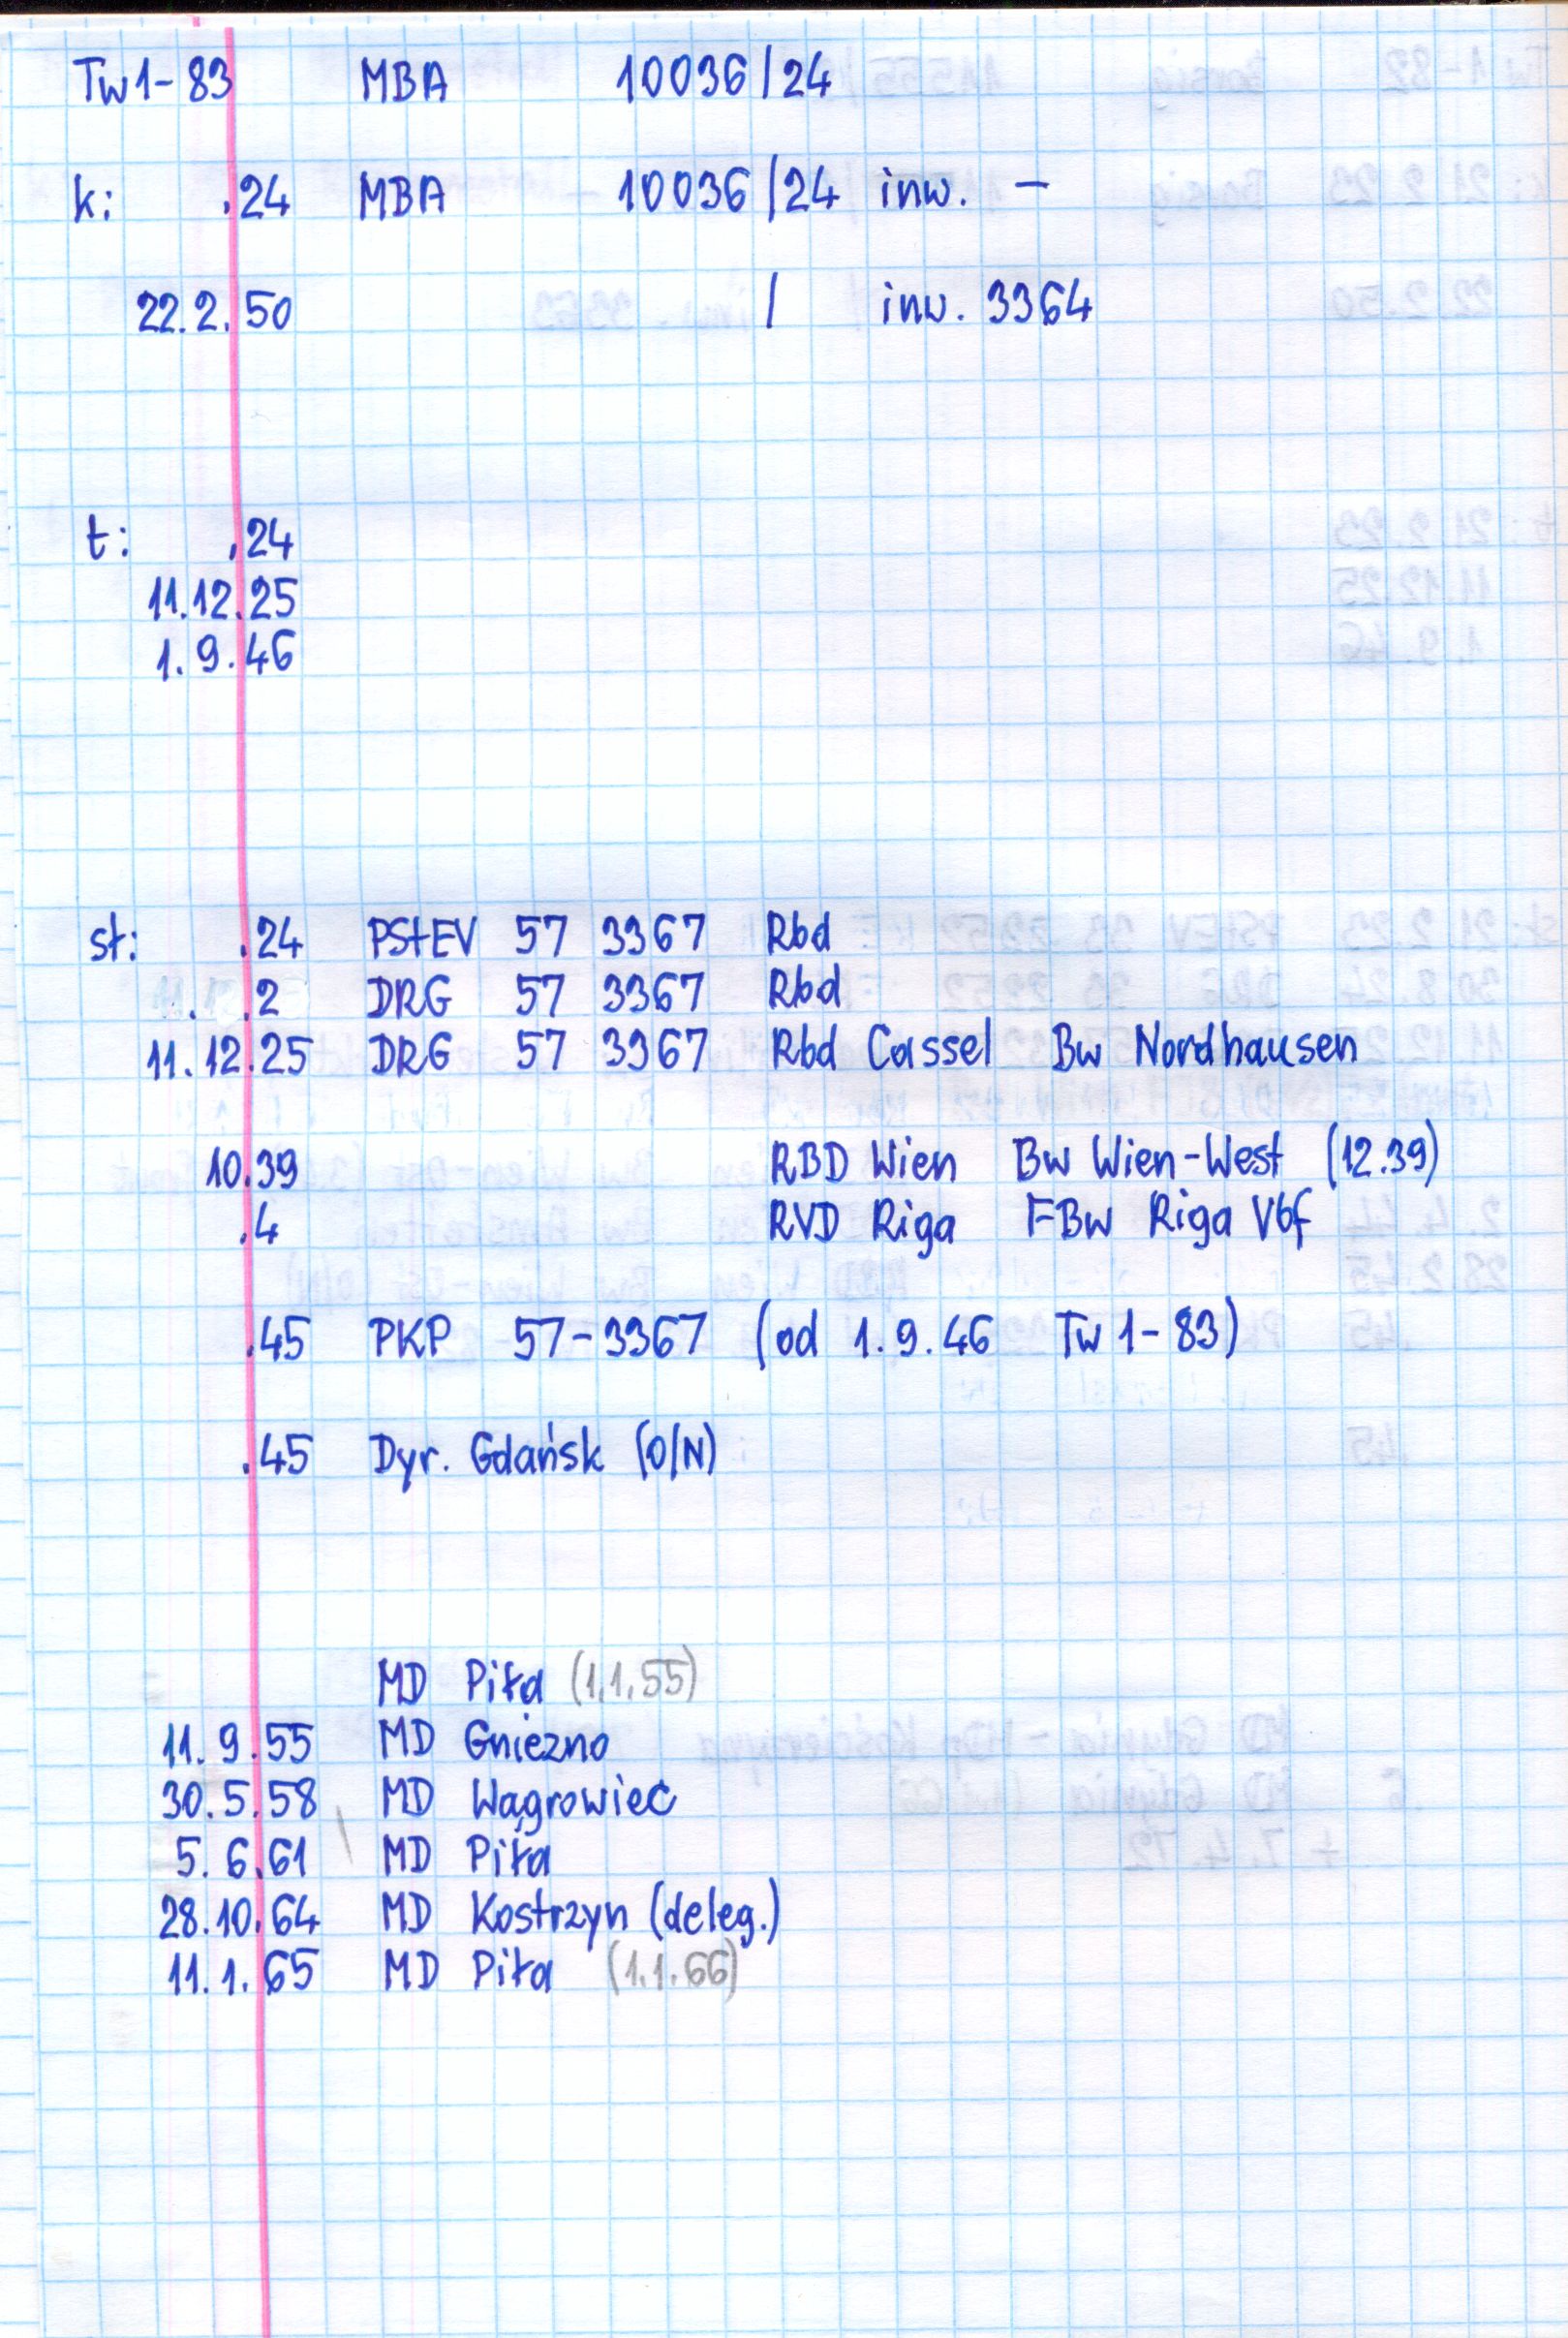 Tw1-83 MBA 10036/24
k: .24 MBA 10036/24 inw. –
22.2.50 / inw. 3364
t: .24
11.12.25
1.9.46
st: .24 PStEV 57 3367 Rbd
. .2 DRG 57 3367 Rbd
11.12.25 DRG 57 3367 Rbd Cassel Bw Nordhausen
10.39 RBD Wien Bw Wien-West (12.39)
.4 RVD Riga FBw Riga Vbf
.45 PKP 57-3367 (od 1.9.46 Tw1-83)
.45 Dyr. Gdańsk (O/N)
MD Piła (1.1.55)
11.9.55 MD Gniezno
30.5.58 MD Wągrowiec
5.6.61 MD Piła
28.10.64 MD Kostrzyn (deleg.)
11.1.65 MD Piła (1.1.66)